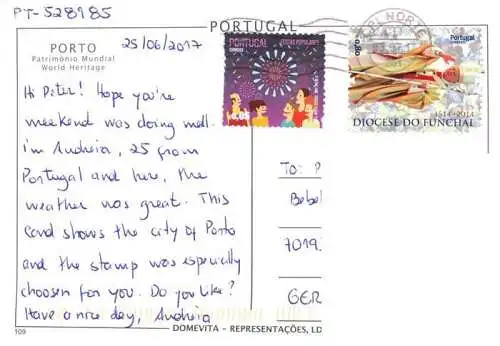 PT-528985
PORTUGAL
25/06/2017
PORTO
Património Mundial
World Heritage
Hi Peter! Hope you're
weekend was doing well.
i'm Andreia, 25 from
Portugal and here, the
weather was great. This
card shows the city of Porto
and the stamp was especially
choosen for you. Do you like?
Have a nice day, Andreia
PORTUGAL
FESTAS POPULARES
Portugal
0,80
1514-2014
DIOCESE DO FUNCHAL
TO: P
Bebel
7019
GER
109
DOMEVITA – REPRESENTAÇÕES, LD